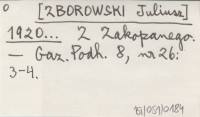 0
[ZBOROWSKI Juliusz]
1920... Z Zakopanego.
— Gaz. Podh. 8, nr 26:
3-4.